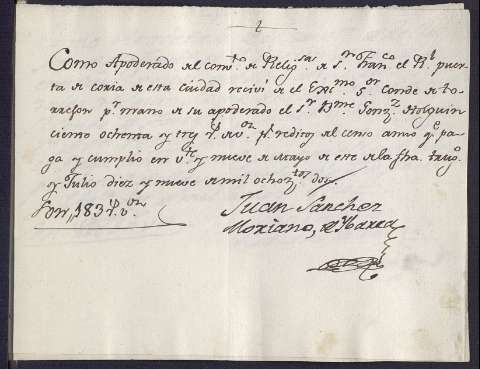 2
Como Apoderado del comto. de Religsas. de Sn. Franco. el Rl. puer
ta de coria de esta ciudad recivi de el Exmo. Sor. Conde de to
rrefon pr. mano de su apoderado el Sr. Dn. Gonzz. Holguin
ciento ochenta y tres rs. von. ps. reditos del censo annuo qe. pa
ga y cumplio en vte. y nueve de mayo de este de la fha. truxo.
y Julio diez y nueve de mil ochoztos. dos.
Son, 183 rs. von.
Juan Sanchez
Moriano, de Ybarra